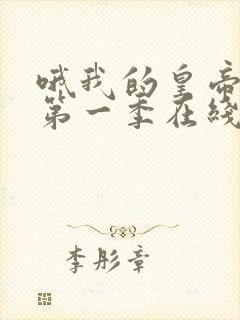 哦我的皇帝
第一季在线
李彤章